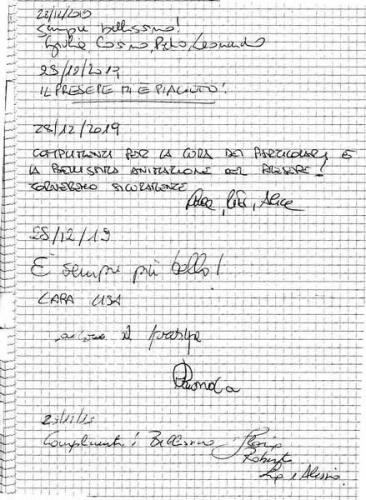 28/12/2019
sempre bellissimo!
Giulia Cosimo, Leonardo
28/12/2019
IL PRESEPE MI È PIACIUTO!
28/12/2019
COMPLIMENTI PER LA CURA DEI PARTICOLARI E
LA BELLISSIMA ANIMAZIONE DEL PRESEPE!
TORNEREMO SICURAMENTE
Alice
28/12/19
È sempre più bello!
CARA LISA
Complimenti! Bellissimo
Roberto
e Alessio